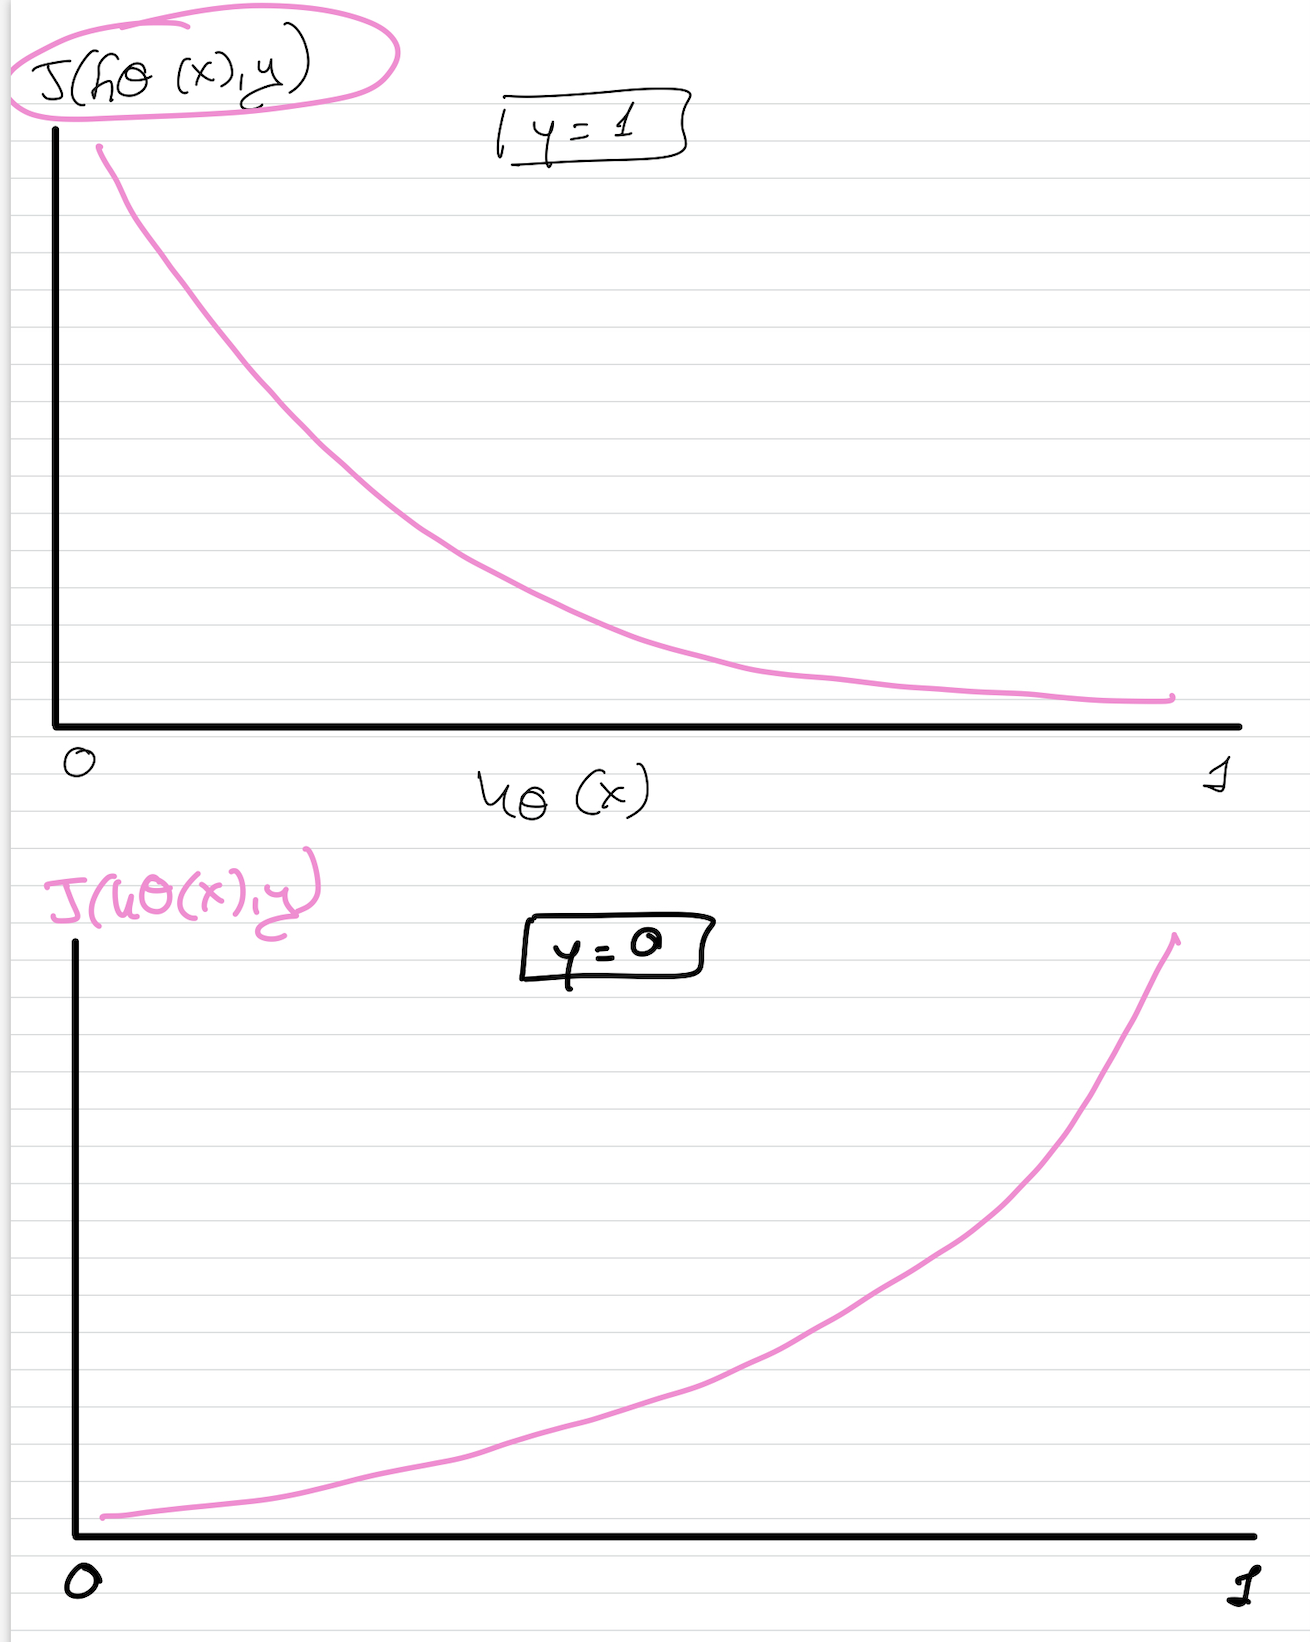 J(hθ(x),y)
y = 1
0
hθ(x)
1
J(hθ(x),y)
y = 0
0
1